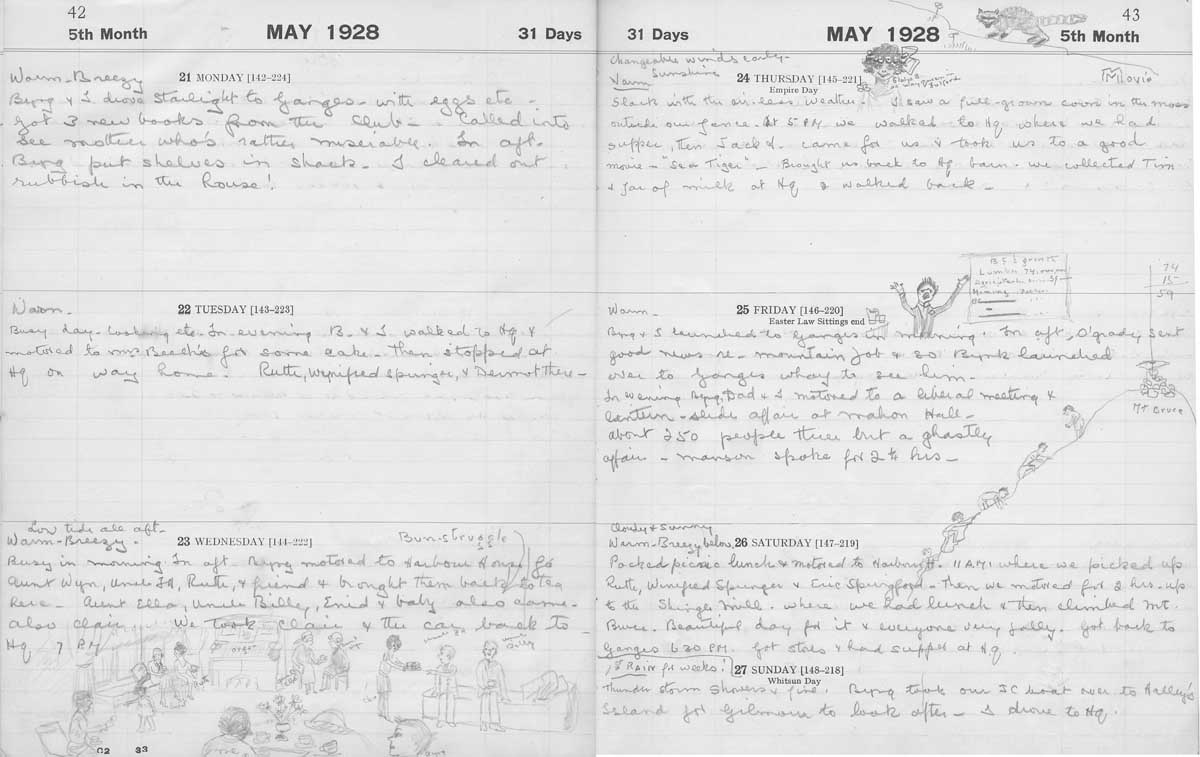 42
5th Month
MAY 1928
31 Days
Warm-Breezy
21 MONDAY [142-224]
Byng & I drove Starlight to Ganges - with eggs etc -
Got 3 new books from the Club - Called into
see mother who's rather miserable. In aft.
Byng put shelves in shack. I cleared out
rubbish in the house!
Warm -
22 TUESDAY [143-223]
Busy day - etc. In evening B. & I. walked to Hq &
motored to Mrs Beech's for some cake - then stopped at
Hq on way home. Ruth, Wynifred Springer, & Dermot there -
Low tide all aft -
Warm-Breezy.
23 WEDNESDAY [144-222]
Bunstruggle
Busy in morning In aft. Byng motored to Harbour House for
Aunt Wyn, Uncle Fd, Ruth, & friend & brought them back to tea
here - Aunt Ella, Uncle Billy, Enid & baby also came -
also Clair. We took Clair & the car back to
Hq 7 PM
Uncle Billy
31 Days
MAY 1928
43
5th Month
Changeable winds early -
Warm Sunshine
24 THURSDAY [145-221]
Empire Day
Movie
Slack with the air-less weather. I saw a full-grown coon in the moss
outside our fence. At 5 PM we walked to Hq where we had
supper, then Jack A. came for us & took us to a good
movie - "Sea Tiger" - Brought us back to Hq barn. We collected Tim
& jar of milk at Hq & walked back -
Warm -
25 FRIDAY [146-220]
Easter Law Sittings end
74
15
59
Byng & I launched to Ganges in morning. In aft, O'grady sent
good news re - mountain job & so Bynk launched
over to Ganges wharf to see him -
In evening Byng, Dad & I motored to a liberal meeting &
lantern-slide affair at Mahon Hall -
about 250 people there but a ghastly
affair - Manson spoke for 2 ½ hrs -
Mt Bruce
Cloudy & Sunny
Warm-Breezy below
26 SATURDAY [147-219]
Packed picnic lunch & motored to 11 AM. where we picked up
Ruth, Winifred Springer & Eric Springford - Then we motored for 2 hrs. up
to the Shingle Mill. where we had lunch & then climbed Mt.
Bruce. Beautiful day for it & everyone very jolly. Got back to
Ganges 6 30 PM. Got stores & had supper at Hq.
1st RAIN for weeks!
27 SUNDAY [148-218]
Whitsun Day
Thunder storm showers & fine. Byng took our JC boat over to
Island for Gilmour to look after - I drove to Hq.